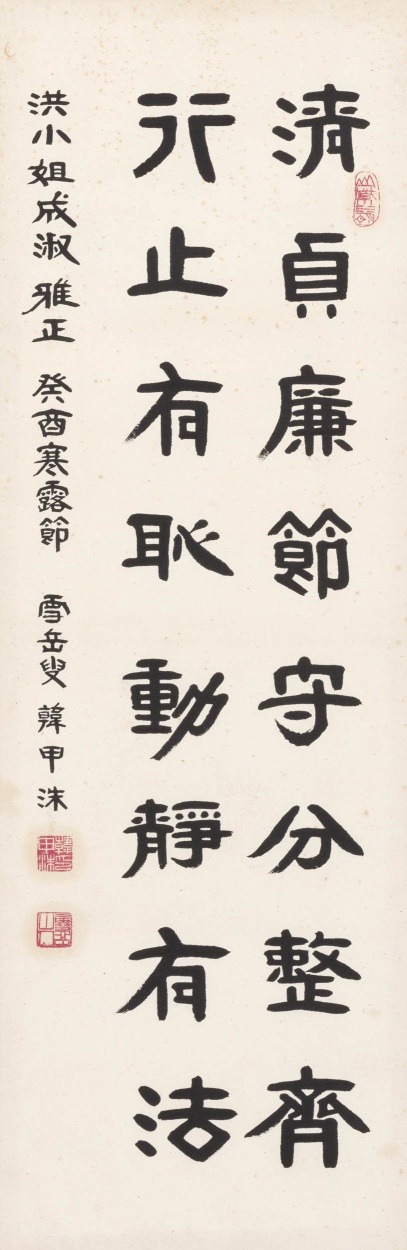 清貞廉節守分整齊
行止有恥動靜有法
洪小姐成淑 雅正 癸酉寒露節 雪岳叟 韓甲洙